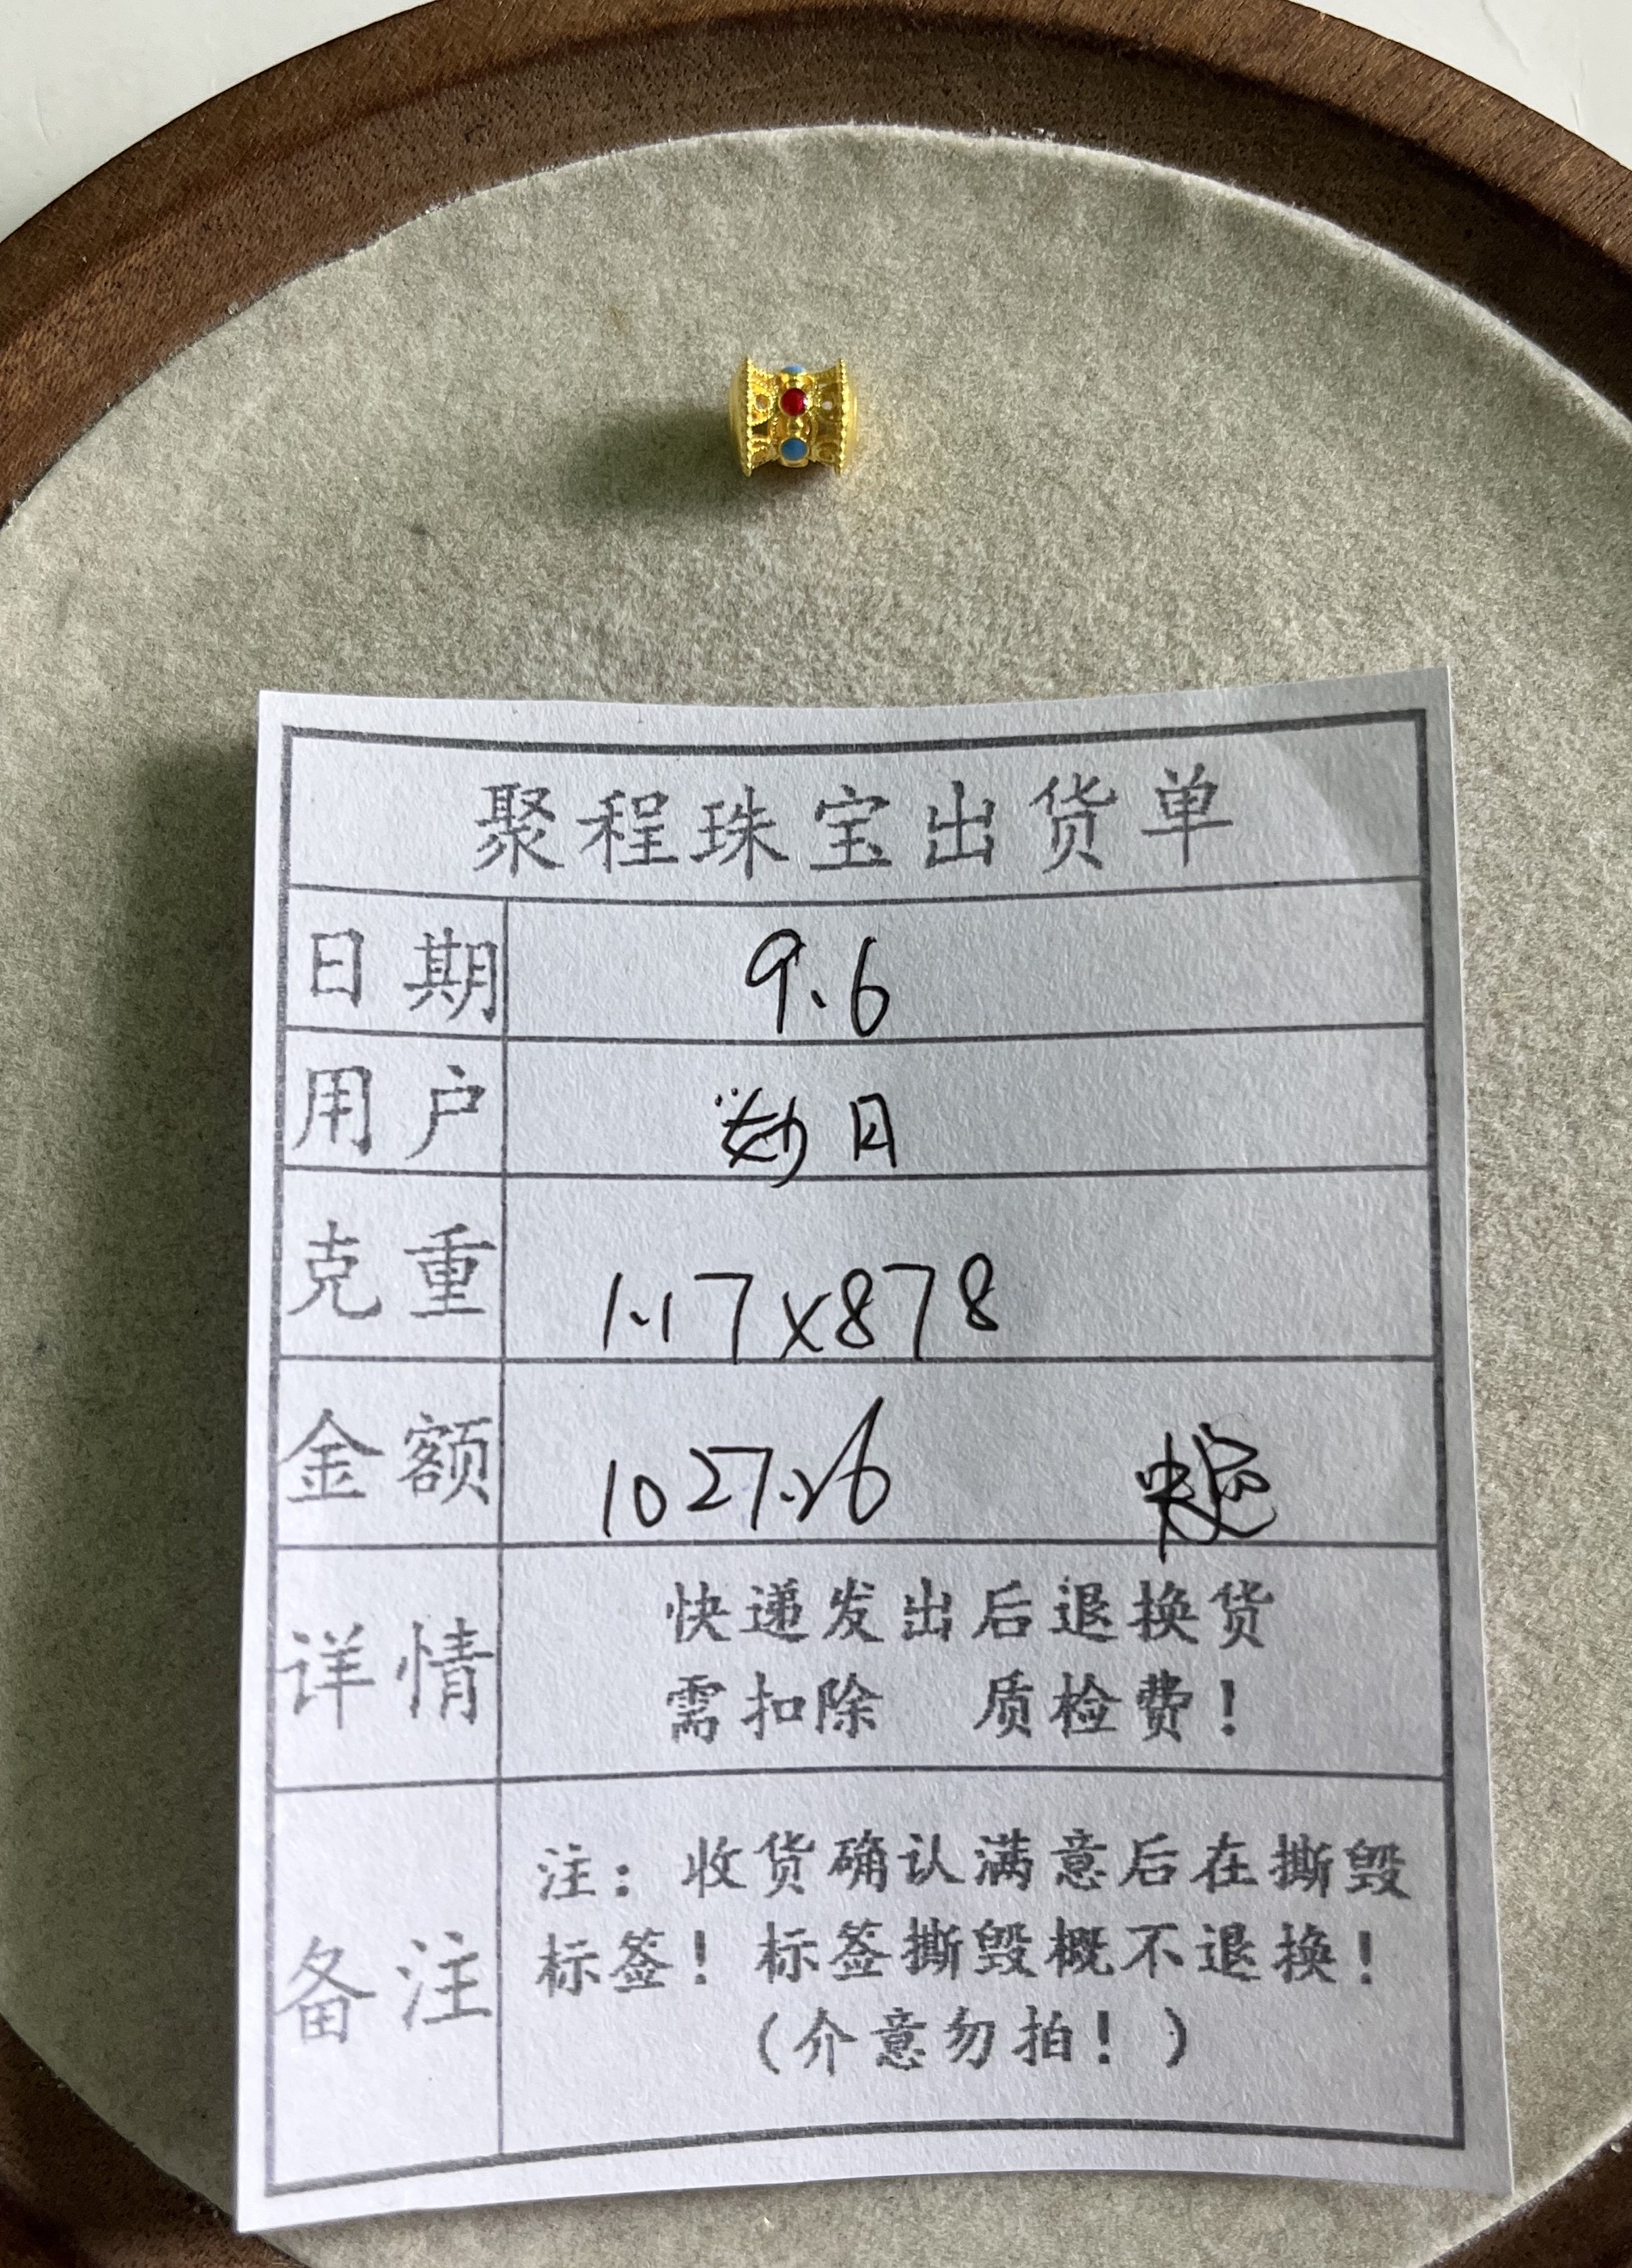 聚程珠宝出货单
日期 9.6
用户 月
克重 1.17x878
金额 1027.26
详情 快递发出后退换货
需扣除 质检费!
备注 注:收货确认满意后在撕毁
标签!标签撕毁概不退换!
(介意勿拍!)